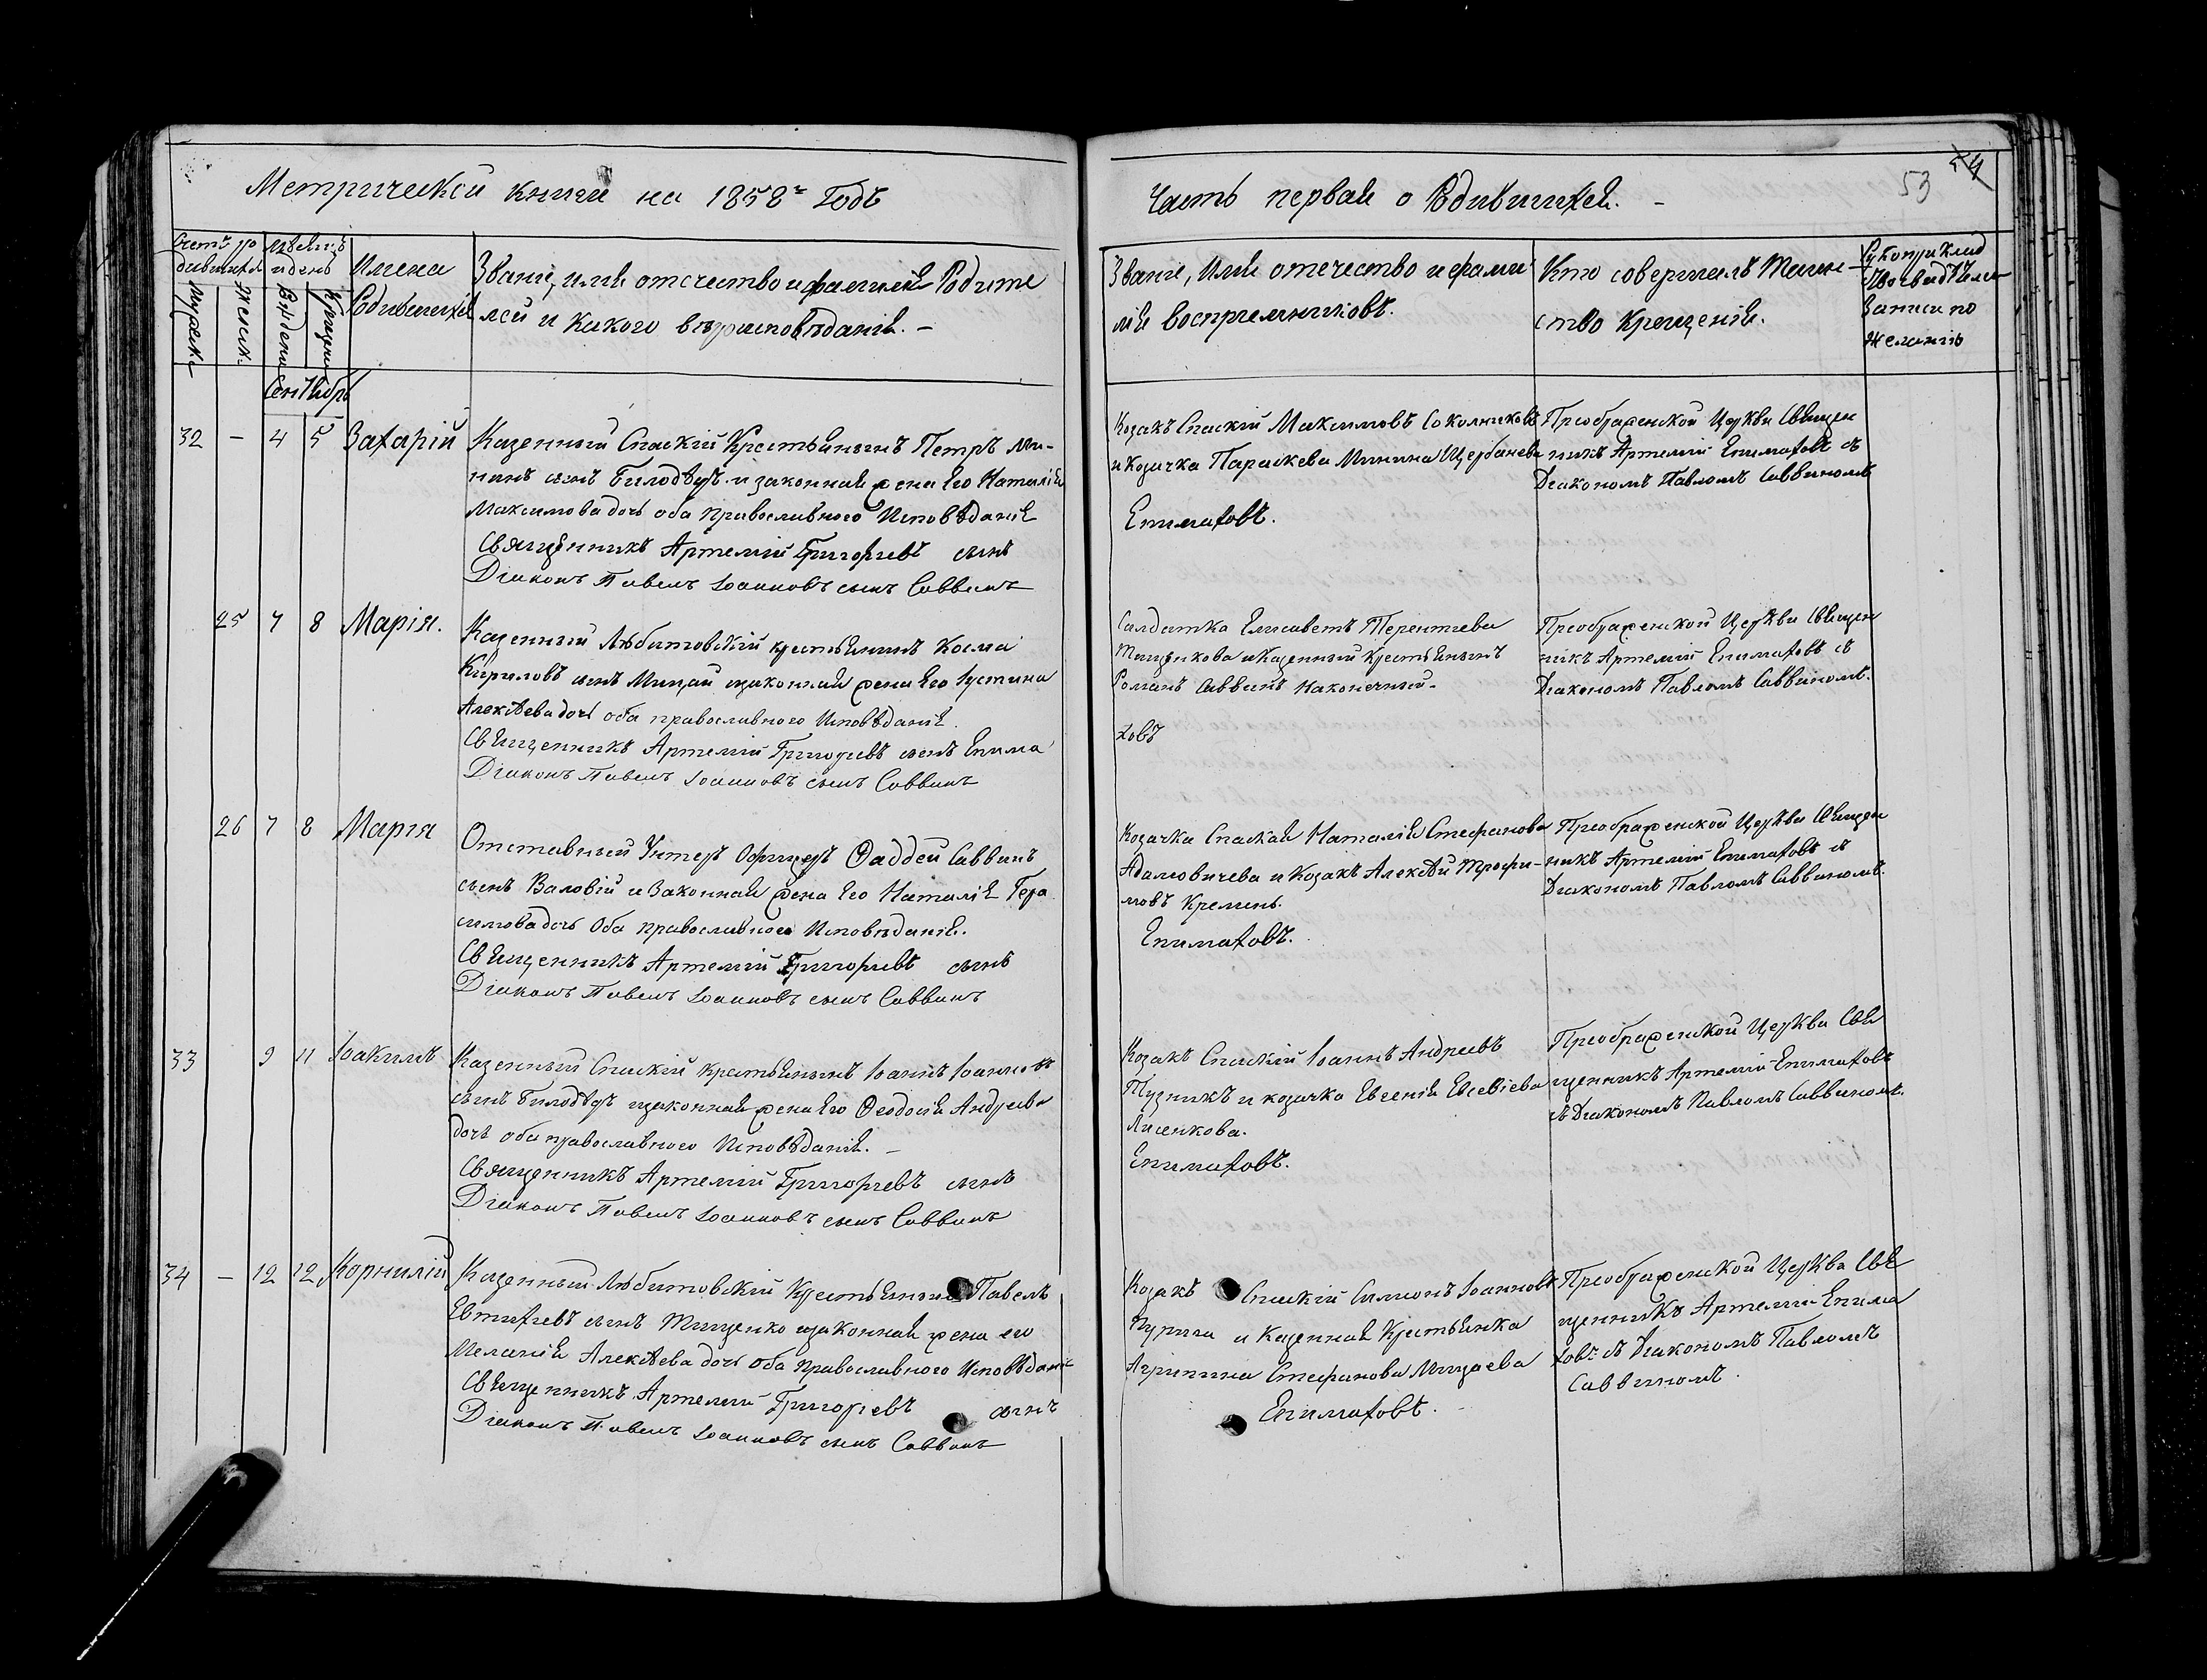 Метрической книги на 1858й Годъ
Часть первая о Родившихся. -
53
54
Счетъ ро
дившихся
Мѣсяцъ
и день
Мужск.
Женск.
Рожденія
Крещенія
Имена
Родившихся
Званіе, имя отечество и фамилія Родите
лей и какого вѣроисповѣданія. -
Званіе, Имя отечество и фами
лія Воспріемниковъ.
Кто совершилъ Таин-
ство Крещенія.
Рукоприклад
Записи по
желанію
Сентябрь
32 - 4 5 Захарій
Казенный Спаскій Крестьянинъ Петръ Ми-
нинъ сынъ Билодѣдъ и законная жена Его Наталія
Максимова дочь оба Православного Исповѣданія
Священникъ Артемій Григорьевъ сынъ
Діаконъ Павелъ Іоанновъ сынъ Саввинъ
Козакъ Спаскій Максимовъ Сокольниковъ
и Козачка Параскева Минина Щербанева
Епимаховъ.
Преображенской Церкви Священ
никъ Артемій Епимаховъ съ
Діакономъ Павломъ Саввиномъ
25 7 8 Марія.
Казенный Любитовскій крестьянинъ Косма
Кириловъ сынъ Мицай и законная жена Его Іустина
Алексѣева дочь оба православного Исповѣданія.
Священникъ Артемій Григорьевъ сынъ Епима
Діаконъ Павелъ Іоанновъ сынъ Саввинъ
Салдатка Елисаветъ Терентіева
Тищенкова и Казенный Крестьянинъ
Романъ Саввинъ Наконечный-
ховъ
Преображенской Церкви Священ
никъ Артемій Епимаховъ съ
Діакономъ Павломъ Саввиномъ.
26 7 8 Марія
Отставный Унтеръ Офицеръ Фаддей Саввинъ
сынъ Валовій и Законная жена Его Наталія Гера
симова дочь Оба православного Исповѣданія.
Священникъ Артемій Григорьевъ сынъ
Діаконъ Павелъ Іоанновъ сынъ Саввинъ
Козачка Спаская Наталія Стефанова
Адамовичева и Козакъ Алексѣй Трофи-
мовъ Кремень.
Епимаховъ.
Преображенской Церкви Священ
никъ Артемій Епимаховъ съ
Діакономъ Павломъ Саввиномъ.
33 9 11 Іоакимъ
Казенный Спаскій крестьянинъ Іоаннъ Іоанновъ
сынъ Билодѣдъ и законная жена Его Феодосія Андреева
дочь оба православного Исповѣданія. -
Священникъ Артемій Григорьевъ сынъ
Діаконъ Павелъ Іоанновъ сынъ Саввинъ
Козакъ Спаскій Іоаннъ Андреевъ
Тузникъ и козачка Евгенія Евсевіева
Лисенкова.
Епимаховъ.
Преображенской Церкви Свя
щенникъ Артемій Епимаховъ
съ Діакономъ Павломъ Саввиномъ.
34 - 12 12 Корнилій
Казенный Любитовскій Крестьянинъ Павелъ
Евтихіевъ сынъ Тищенко и законная жена его
Меланія Алексѣева дочь оба Православного Исповѣданія
Священникъ Артемій Григорьевъ сынъ
Діаконъ Павелъ Іоанновъ сынъ Саввинъ
Козакъ Спаскій Симонъ Іоанновъ
и Казенная Крестьянка
Агрипина Стефанова Мицаева
Епимаховъ.
Преображенской Церкви Свя
щенникъ Артемій Епима
ховъ съ Діакономъ Павломъ
Саввиномъ.